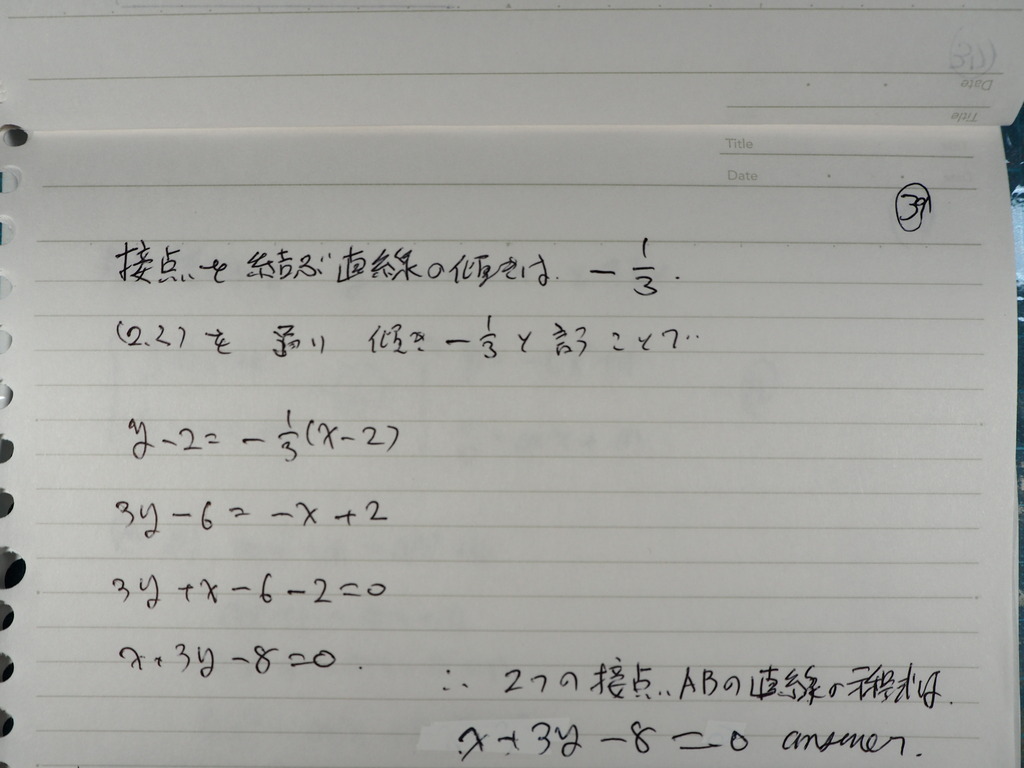 Title
Date
㊴
接点を結ぶ直線の傾きは. - 1/3.
(2.2)を 通り 傾き - 1/3 と 言うことで‥
y - 2 = - 1/3 (x - 2)
3y - 6 = -x + 2
3y + x - 6 - 2 = 0
x + 3y - 8 = 0.
∴ 2つの接点‥ABの直線の方程式は.
x + 3y - 8 = 0 answer.